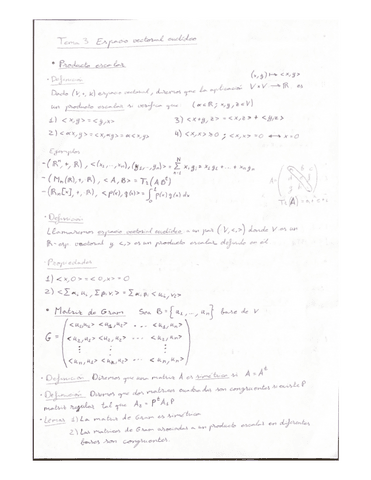 Tema 3: Espacio vectorial euclídeo
• Producto escalar
- Definición
(x,y) ↦ <x,y>
Dado (V,+,ℝ) espacio vectorial, diremos que la aplicación V×V → ℝ es
un producto escalar si verifica que (α∈ℝ; x,y,z∈V)
1) <x,y> = <y,x> 3) <x+y,z> = <x,z> + <y,z>
2) <αx,y> = <x,αy> = α<x,y> 4) <x,x> ≥ 0 ; <x,x> = 0 ⟺ x=0
Ejemplos
- (ℝⁿ,+,ℝ), <(x₁,...,xₙ),(y₁,...,yₙ)> = Σ xᵢyᵢ = x₁y₁ + ... + xₙyₙ
- (Mₙ(ℝ),+,ℝ), <A,B> = Tr(ABᵗ)
- (ℝₙ[x],+,ℝ), <p(x),q(x)> = ∫ p(x)q(x)dx
- Definición
Llamaremos espacio vectorial euclídeo a un par (V,<,>) donde V es un
ℝ-esp. vectorial y <,> es un producto escalar definido en él.
Propiedades
1) <x,0> = <0,x> = 0
2) <Σαᵢuᵢ, Σβᵢvᵢ> = Σαᵢβᵢ<uᵢ,vᵢ>
• Matriz de Gram Sea B = {u₁,...,uₙ} base de V
G = (<u₁,u₁> <u₁,u₂> ... <u₁,uₙ>
<u₂,u₁> <u₂,u₂> ... <u₂,uₙ>
⋮ ⋮ ⋮
<uₙ,u₁> <uₙ,u₂> ... <uₙ,uₙ>)
- Definición Diremos que una matriz A es simétrica si A = Aᵗ
- Definición Diremos que dos matrices cuadradas son congruentes si existe P
matriz regular tal que A₂ = PᵗA₁P
- Lemas 1) La matriz de Gram es simétrica
2) Las matrices de Gram asociadas a un producto escalar en diferentes
bases son congruentes